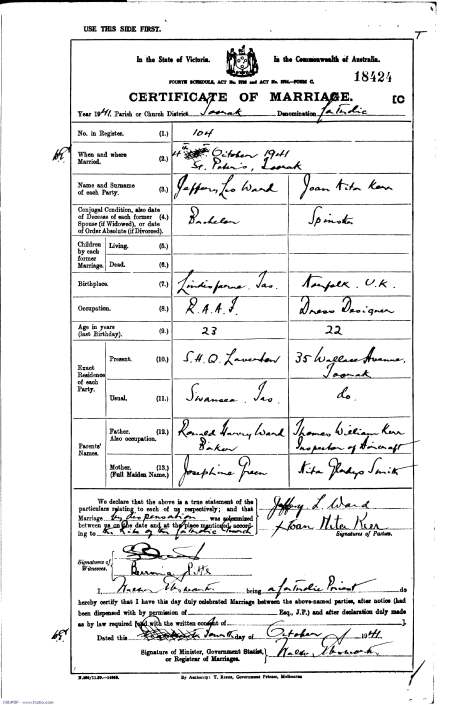 USE THIS SIDE FIRST.
In the State of Victoria. In the Commonwealth of Australia.
18424
CERTIFICATE OF MARRIAGE. [C
Year 1941. Parish or Church District Toorak Denomination Catholic
No. in Register. (1.) 104
When and where Married. (2.) 4th October 1941
St. Peter's, Toorak
Name and Surname of each Party. (3.) Jeffery Leo Ward Joan Nita Kerr
Conjugal Condition, also date of Decease of each former (4.) Spouse (if Widowed), or date of Order Absolute (if Divorced). Bachelor Spinster
Children by each former Marriage. Living. (5.)
Dead. (6.)
Birthplace. (7.) Lindisfarne. Tas. Norfolk. U.K.
Occupation. (8.) R.A.A.F. Dress Designer
Age in years (last Birthday). (9.) 23 22
Exact Residence of each Party. Present. (10.) S.H.Q. Laverton 35 Wallace Avenue, Toorak
Usual. (11.) Swansea. Tas. do.
Parents' Names. Father. (12.) Also occupation. Ronald Harry Ward Baker Thomas William Kerr Inspector of Aircraft
Mother. (13.) (Full Maiden Name.) Josephine Green Nita Gladys Smith
We declare that the above is a true statement of the
particulars relating to each of us respectively; and that
Marriage by dispensation was solemnized
between us on the date and at the place mentioned, accord-
ing to the Rites of the Catholic Church
Jeffery L Ward
Joan Nita Kerr
Signatures of Parties.
Signatures of Witnesses.
I, being a Catholic Priest do
hereby certify that I have this day duly celebrated Marriage between the above-named parties, after notice (had
been dispensed with by permission of Esq., J.P.) and after declaration duly made
as by law required (and with the written consent of )
Dated this Fourth day of October 1941
Signature of Minister, Government Statist, or Registrar of Marriages.
By Authority: Government Printer, Melbourne